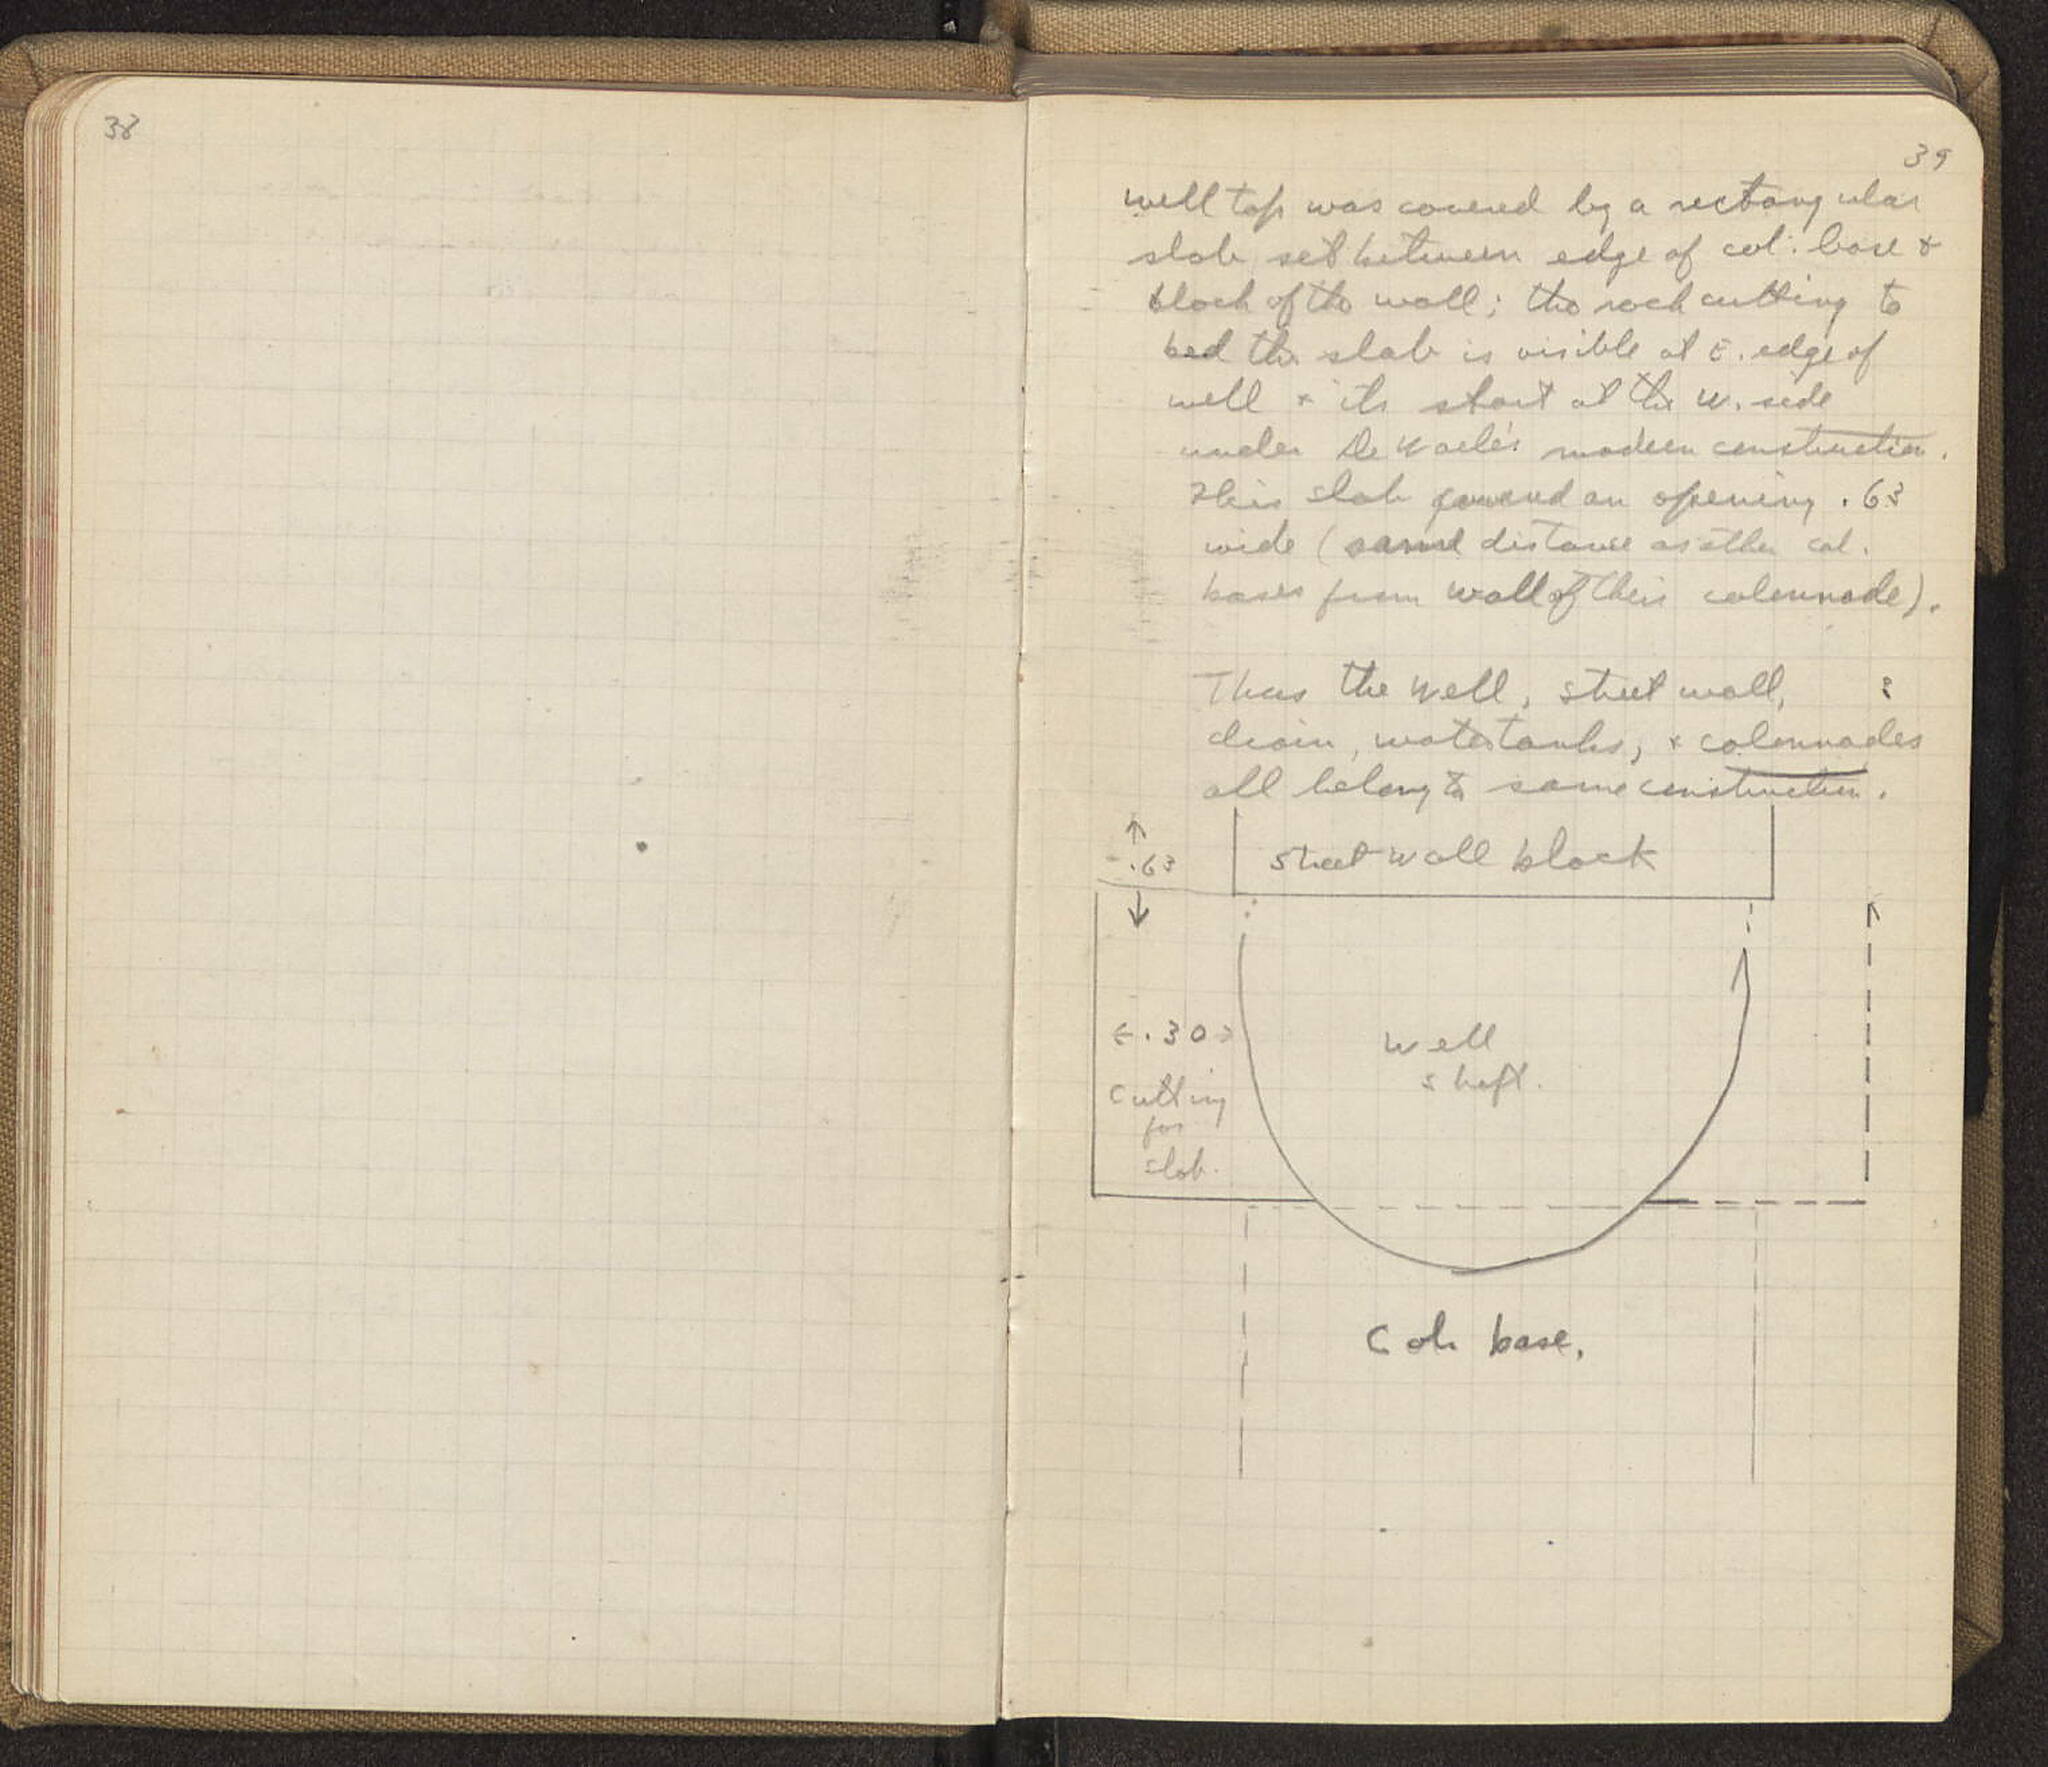 38
39
well top was covered by a rectangular
slab set between edge of col. base &
block of the wall; the rock cutting to
bed the slab is visible at E. edge of
well & its start at the W. side
under De Waele's modern construction.
This slab covered an opening .63
wide (same distance as other col.
bases from wall of their colonnade).
Thus the well, street wall,
drain, water tanks, & colonnades
all belong to same construction.
.63
street wall block
.30
cutting
for
slab.
well
shaft.
Col. base.